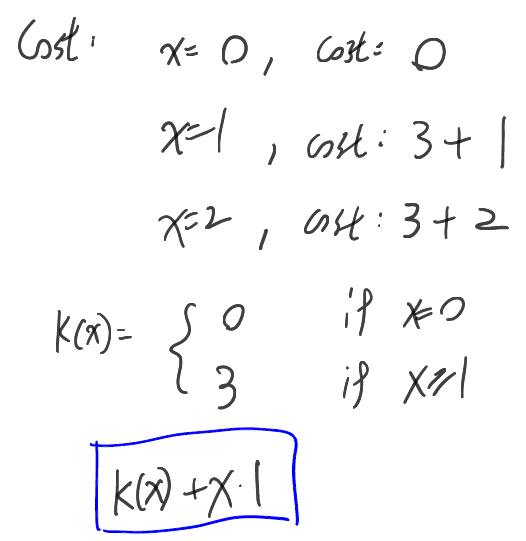 Cost: x=0, cost: 0
x=1, cost: 3+1
x=2, cost: 3+2
K(x)= { 0 if x=0
3 if x≥1
K(x)+x·1